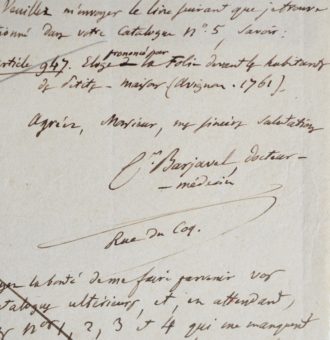 Veuillez m'envoyer le livre suivant que je trouve
ionné dans votre Catalogue n.° 5, Savoir:
article 947. Eloge prononcé par la Folie devant les habitants
des Petites-maisons (Avignon. 1761).
Agréez, Monsieur, mes sincères salutations
Barjavel, docteur-
-médecin
Rue du Coq.
la bonté de me faire parvenir vos
atalogues ultérieurs, et, en attendant,
nos 1, 2, 3 et 4 qui me manquent